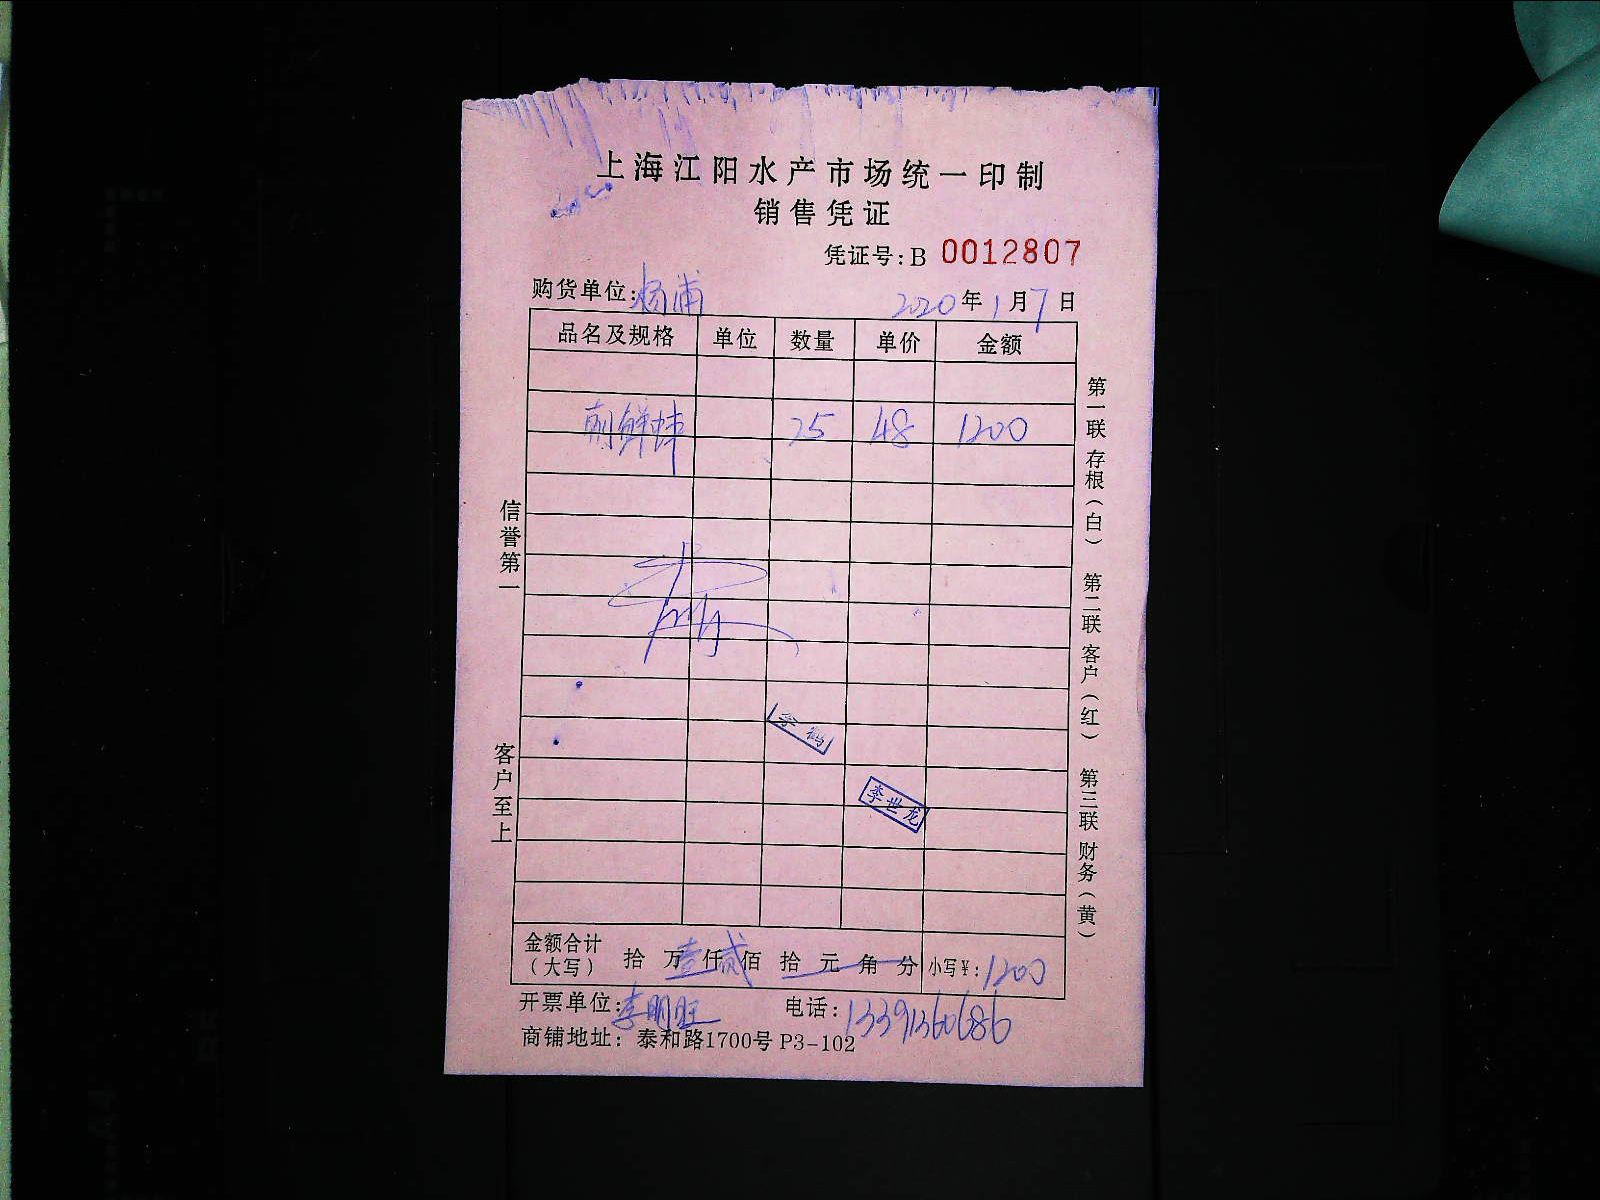 上海江阳水产市场统一印制
销售凭证
凭证号:B 0012807
购货单位:杨浦 2020年1月7日
品名及规格 单位 数量 单价 金额
朝鲜蚌 25 48 1200
李鹤
李世龙
金额合计(大写) 拾 万壹仟贰佰 拾 元 角 分 小写¥:1200
开票单位:李明旺 电话:13391360686
商铺地址: 泰和路1700号 P3-102
信誉第一
客户至上
第一联 存根(白) 第二联 客户(红) 第三联 财务(黄)